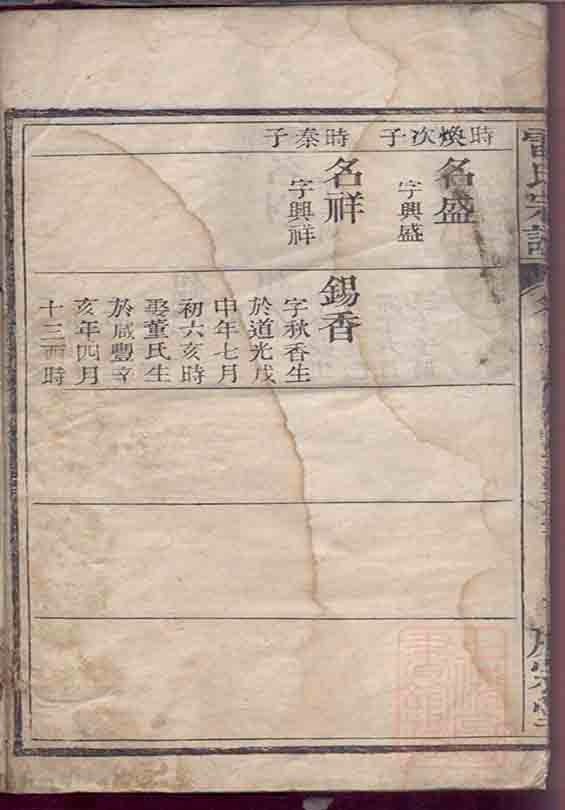 時煥次子
名盛
字興盛
時泰子
名祥
字興祥
錫香
字秋香生
於道光戊
申年七月
初六亥時
娶董氏生
於咸豐辛
亥年四月
十三酉時
雷氏宗譜